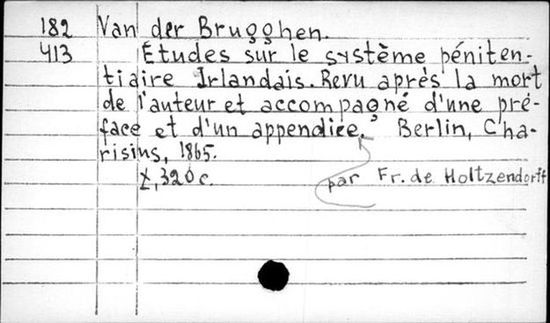 182 Van der Brugghen.
413 Études sur le système péniten-
tiaire Irlandais. Revu après la mort
de l'auteur et accompagné d'une pré-
face et d'un appendice. Berlin, Cha-
risius, 1865.
X, 320 c. par Fr. de Holtzendorff